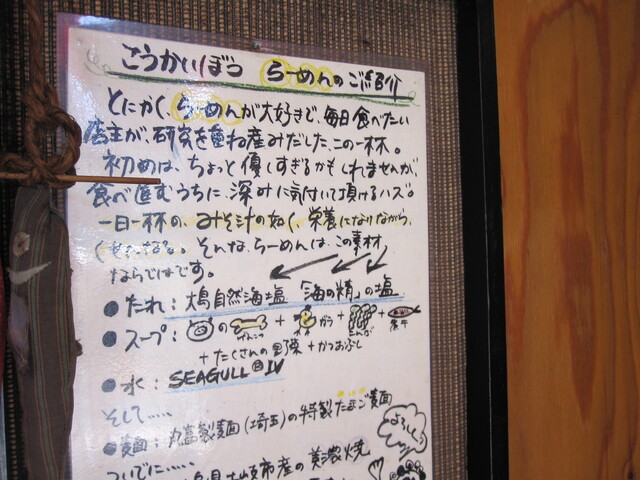 ごうかいぼう らーめんのご紹介
とにかく、らーめんが大好きで、毎日食べたい
店主が、研究を重ね産みだした、この一杯。
初めは、ちょっと優しすぎるかもしれませんが、
食べ進むうちに、深みに気付いて頂けるハズ。
一日一杯の、みそ汁の如く、栄養になりながら、
そんな、らーめんは、この素材
ならではです。
●たれ：大島自然海塩「海の精」の塩
●スープ：の げんこつ + ガラ + + 煮干
+たくさんの野菜+かつおぶし
●水：SEAGULL IV
そして.....
●麺：丸富製麺(埼玉)の特製たまご麺
よろしく
ついでに.....
土岐市産の美濃焼